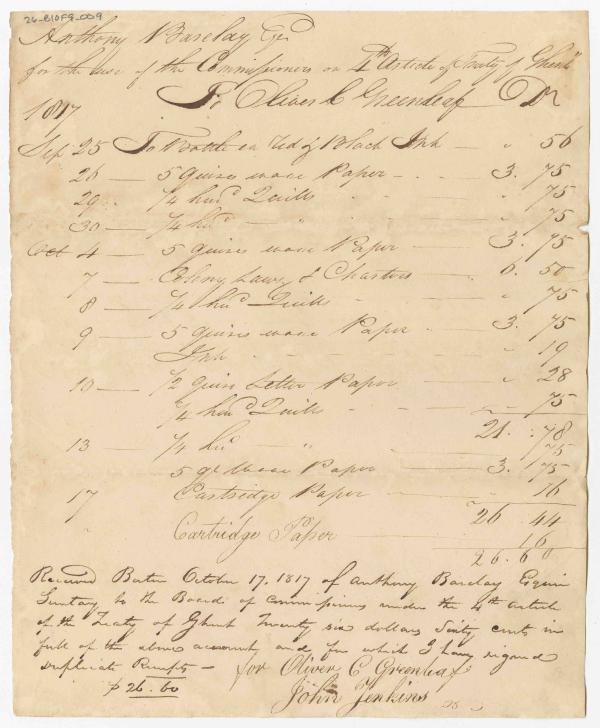 26-B10F9-009
Anthony Barclay Esqr
for the use of the Commissioners on 4th Article of Treaty of Ghent
To Oliver C Greenleaf Dr
1817
Sep 25 To Bottle on Red & Black Ink — " 56
26 — 5 quires wove Paper - - 3. 75
29 - 1/4 hund Quills - " 75
30 — 1/4 hund — " " 75
Oct 4 — 5 quires wove Paper — 3. 75
7 — Colony Laws & Charters — 6. 50
8 — 1/4 hund Quills - " 75
9 — 5 quires wove Paper - 3. 75
Ink - - - " 19
10 — 1/2 quire Letter Paper — " 28
1/4 hund Quills - - - 75
21. 78
13 — 1/4 hund — " 75
5 qr Wove Paper — 3. 75
17 Cartridge Paper — 16
26. 44
Cartridge Paper — 16
26. 60
Received Boston October 17. 1817 of Anthony Barclay Esquire
Secretary to the Board of Commissioners under the 4th article
of the Treaty of Ghent Twenty six dollars Sixty cents in
full of the above account, and for which I have signed
duplicate Receipts —
for Oliver C Greenleaf
$26.60
John Jenkins